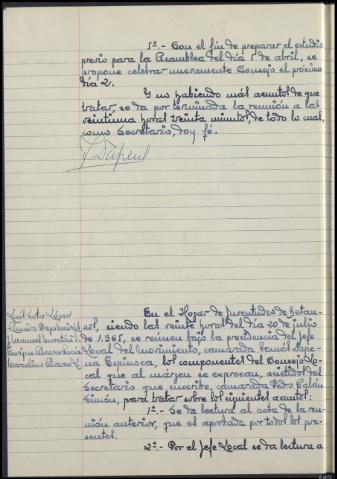 1º.- Con el fin de preparar el estudio
previo para la Asamblea del día 7 de abril, se
propone celebrar nuevamente Consejo el próximo
día 2.
Y no habiendo más asuntos de que
tratar, se da por terminada la reunión a las
veintiuna horas treinta minutos, de todo lo cual,
como Secretario, doy fé.
Luis Soto López
Enrique
Marcelino Alvarez
En el Hogar de Juventudes de Betan-
zos, siendo las veinte horas del día 20 de julio
de 1.965, se reunen bajo la presidencia del Jefe
Local del Movimiento, camarada Tomás
Espinosa, los componentes del Consejo Lo-
cal que al márgen se expresan, asistidos del
Secretario que suscribe, camarada Pedro
Simón, para tratar sobre los siguientes asuntos:
1º.- Se da lectura al acta de la reu-
nión anterior, que es aprobada por todos los pre-
sentes.
2º.- Por el Jefe Local se da lectura a